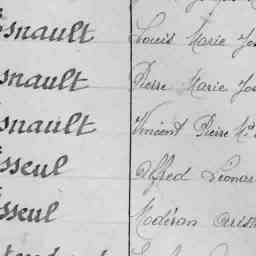 Esnault Louis Marie Jos
Esnault Pierre Marie Jos
Esnault Vincent Pierre M
Esseul Alfred Léonar
Esseul Modéran Arist